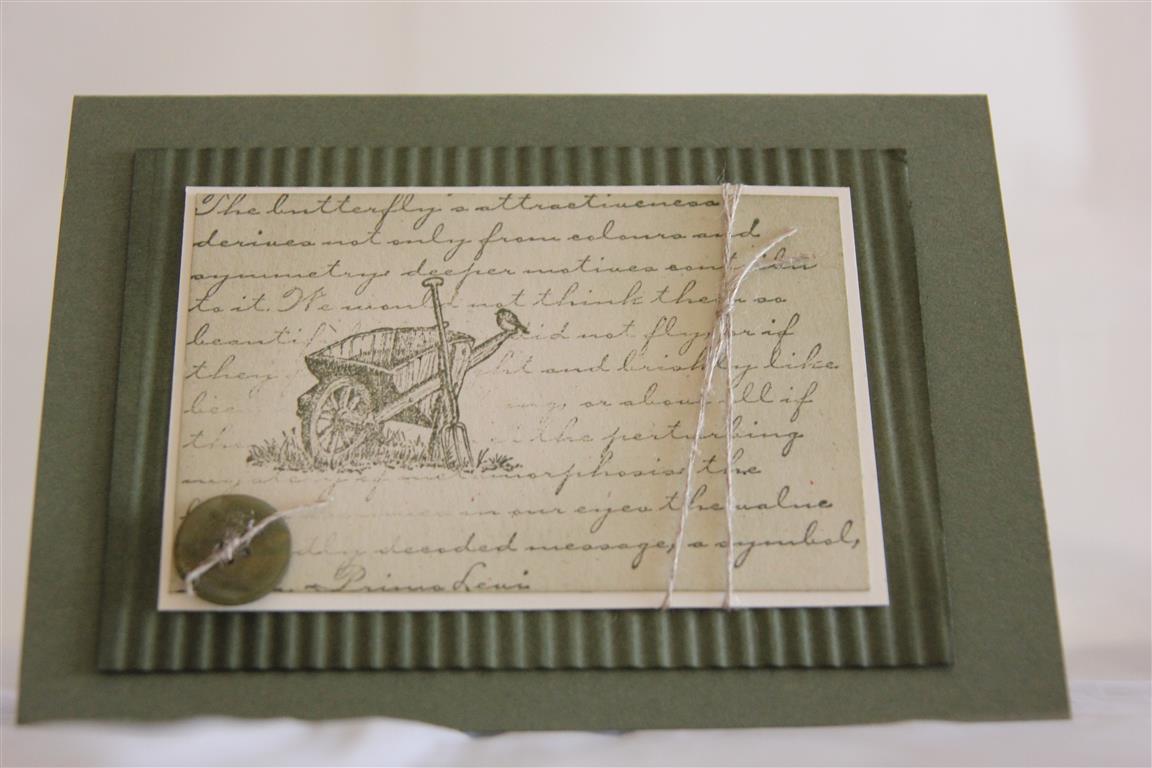 The butterfly's attractiveness
derives not only from colours and
symmetry: deeper motives contribu
to it. We would not think them so
beautif did not fly, or if
they ht and briskly like
be ng, or above all if
the the perturbing
mystery of metamorphosis: the
in our eyes the value
tly decoded message, a symbol,
Primo Levi